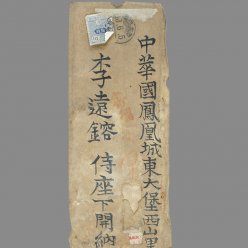 中華國鳳凰城東大堡西山里
李遠鎔 侍座下開納